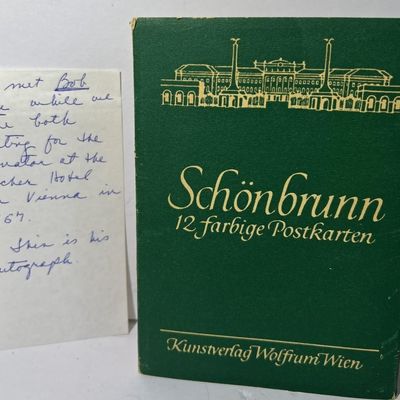 met Bob
while we
both
for the
at the
Hotel
Vienna in
This is his
Schönbrunn
12 farbige Postkarten
Kunstverlag Wolfrum Wien